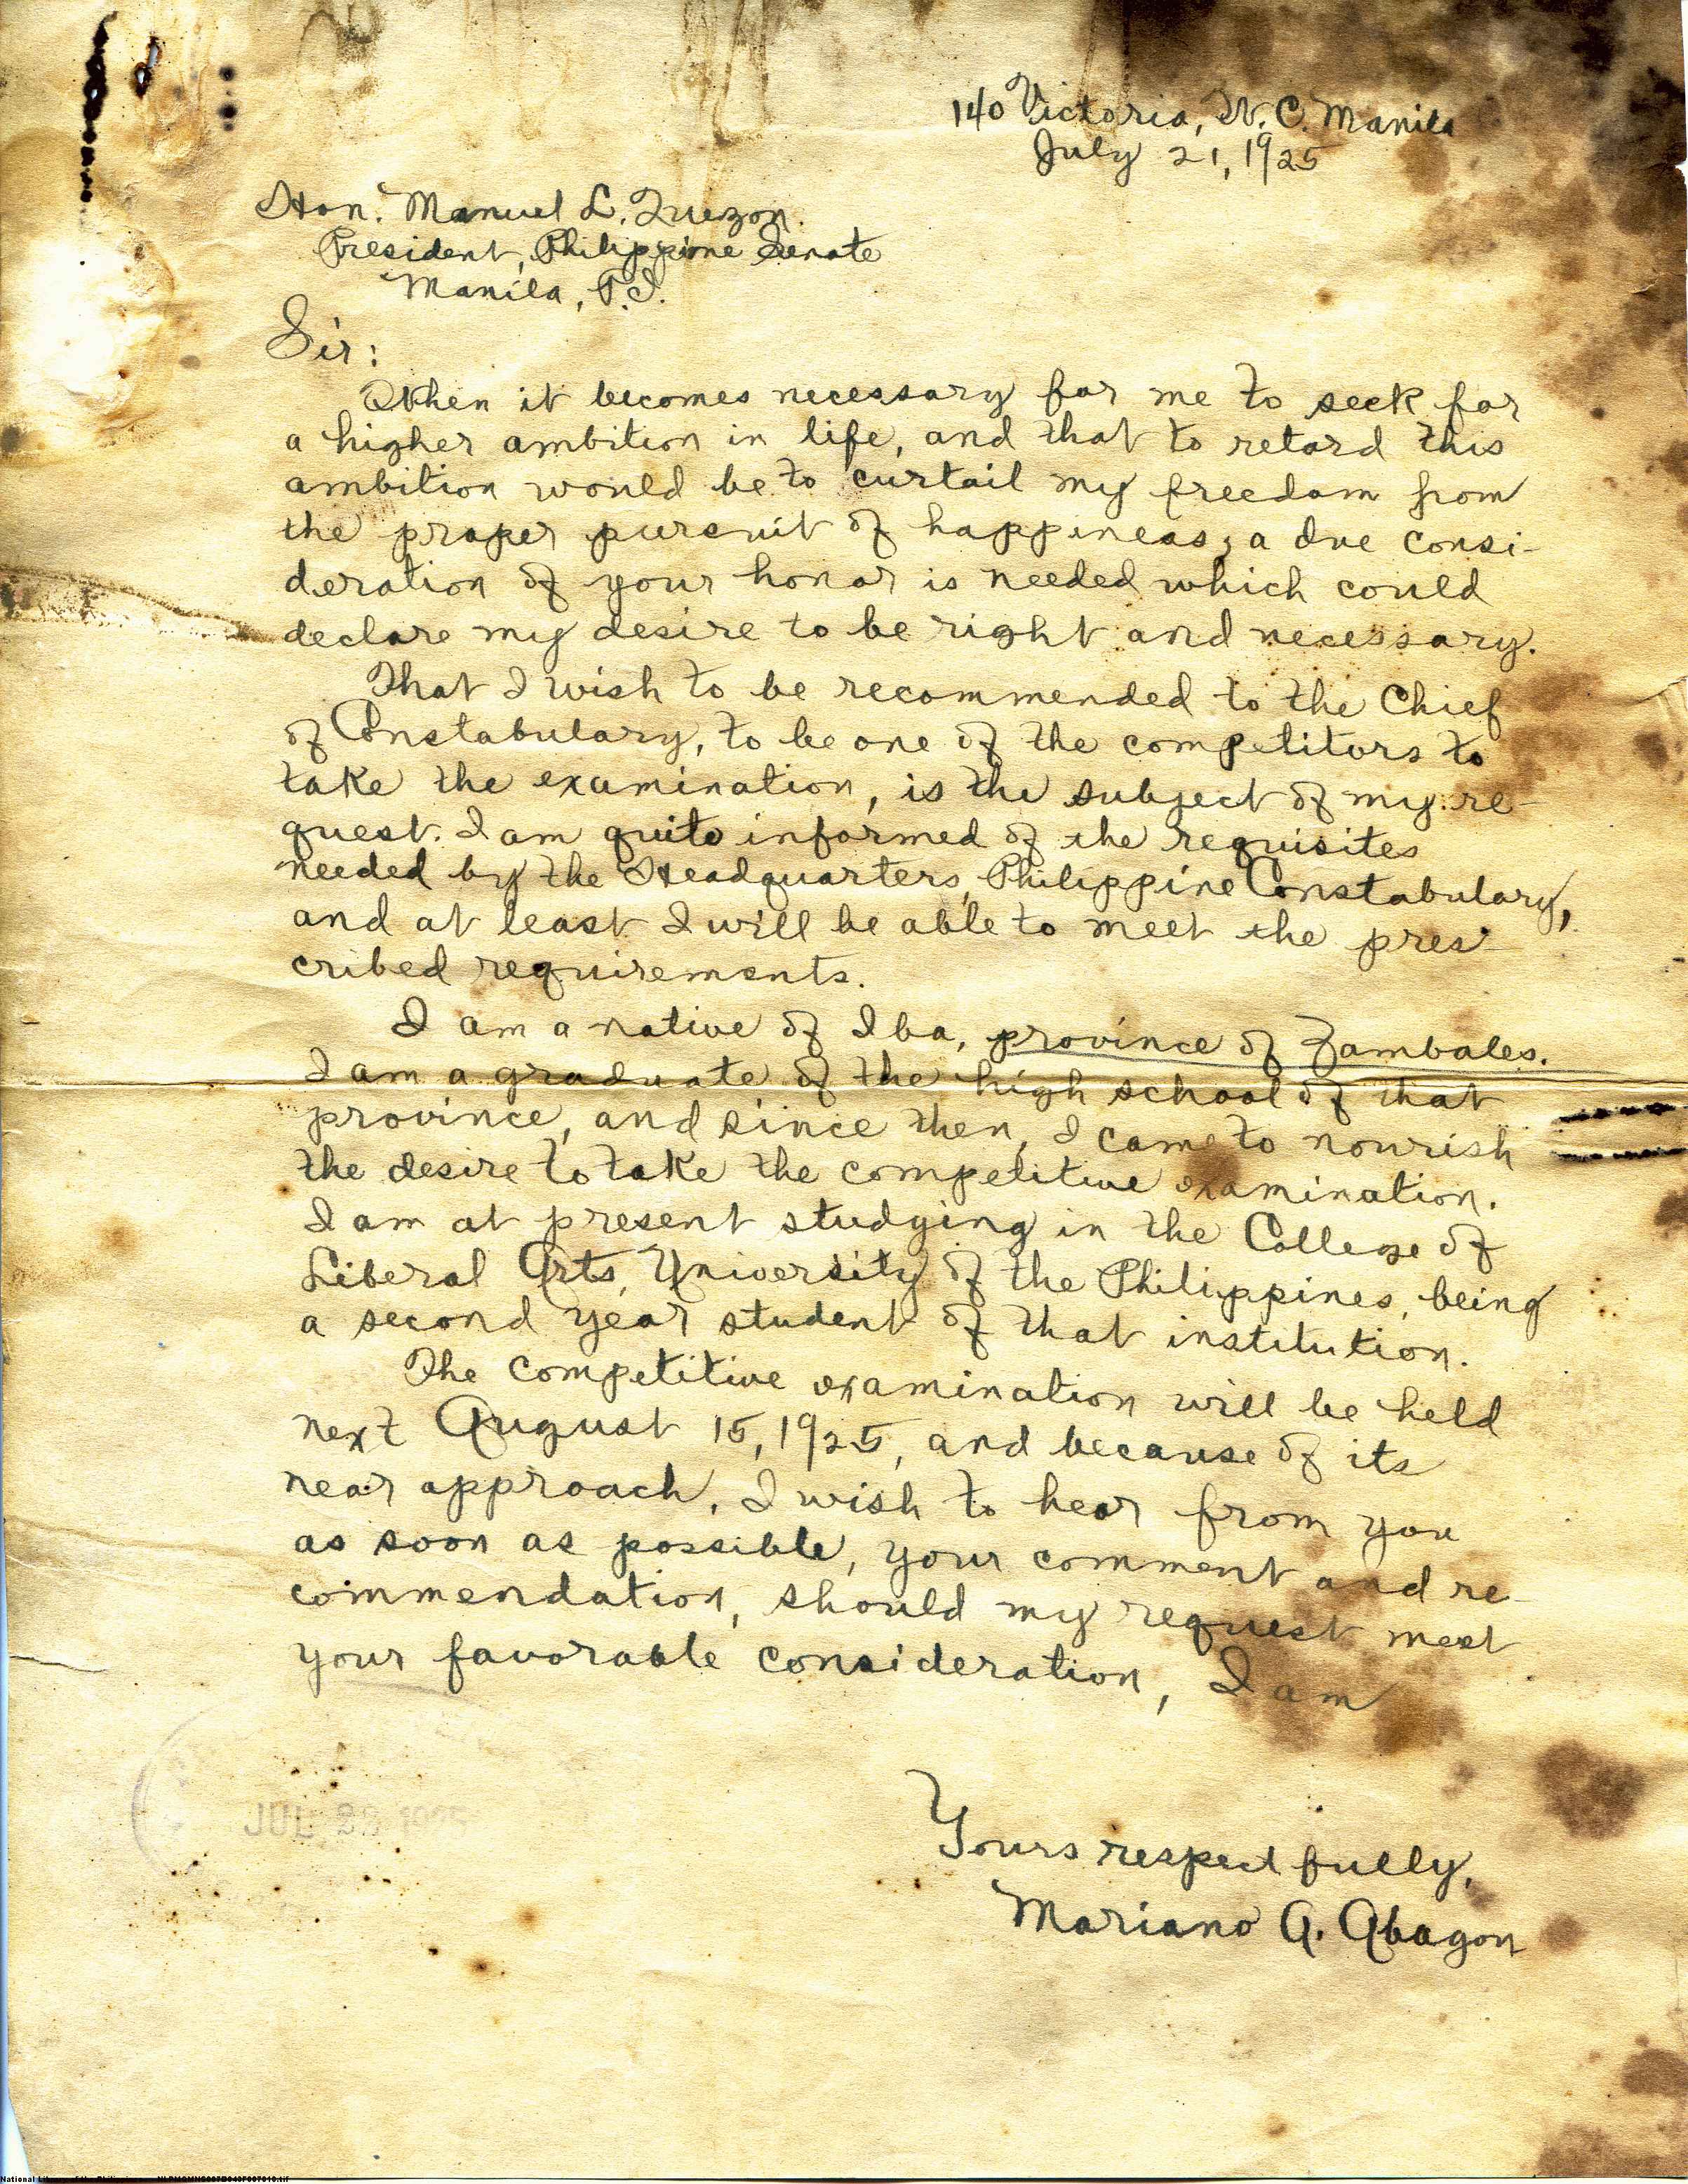 140 Victoria, W. C. Manila
July 21, 1925
Hon. Manuel L. Quezon.
President, Philippine Senate
Manila, P.I.
Sir:
When it becomes necessary for me to seek for
a higher ambition in life, and that to retard this
ambition would be to curtail my freedom from
the proper pursuit of happiness; a due consi-
deration of your honor is needed which could
declare my desire to be right and necessary.
That I wish to be recommended to the Chief
of Constabulary, to be one of the competitors to
take the examination, is the subject of my re-
quest. I am quite informed of the requisites
needed by the Headquarters, Philippine Constabulary,
and at least I will be able to meet the pres-
cribed requirements.
I am a native of Iba, province of Zambales.
I am a graduate of the high school of that
province, and since then, I came to nourish
the desire to take the competitive examination.
I am at present studying in the College of
Liberal Arts, University of the Philippines, being
a second year student of that institution.
The competitive examination will be held
next August 15, 1925, and because of its
near approach, I wish to hear from you
as soon as possible, your comment and re-
commendation, should my request meet
your favorable consideration, I am
JUL 22 1925
Yours respectfully,
Mariano A. Abagon
National Library of the Philippines